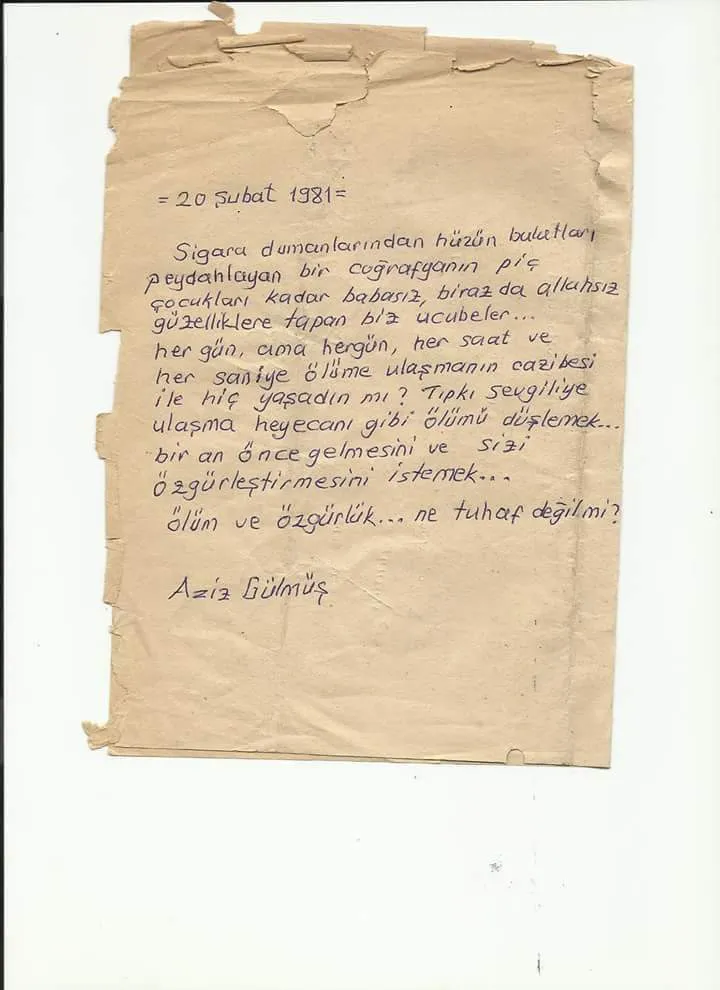 = 20 Şubat 1981=
Sigara dumanlarından hüzün bulutları
peydahlayan bir coğrafyanın piç
çocukları kadar babasız, biraz da allahsız
güzelliklere tapan biz ucubeler...
her gün, ama hergün, her saat ve
her saniye ölüme ulaşmanın cazibesi
ile hiç yaşadın mı? Tıpkı sevgiliye
ulaşma heyecanı gibi ölümü düşlemek...
bir an önce gelmesini ve sizi
özgürleştirmesini istemek...
ölüm ve özgürlük... ne tuhaf değilmi?
Aziz Gülmüş